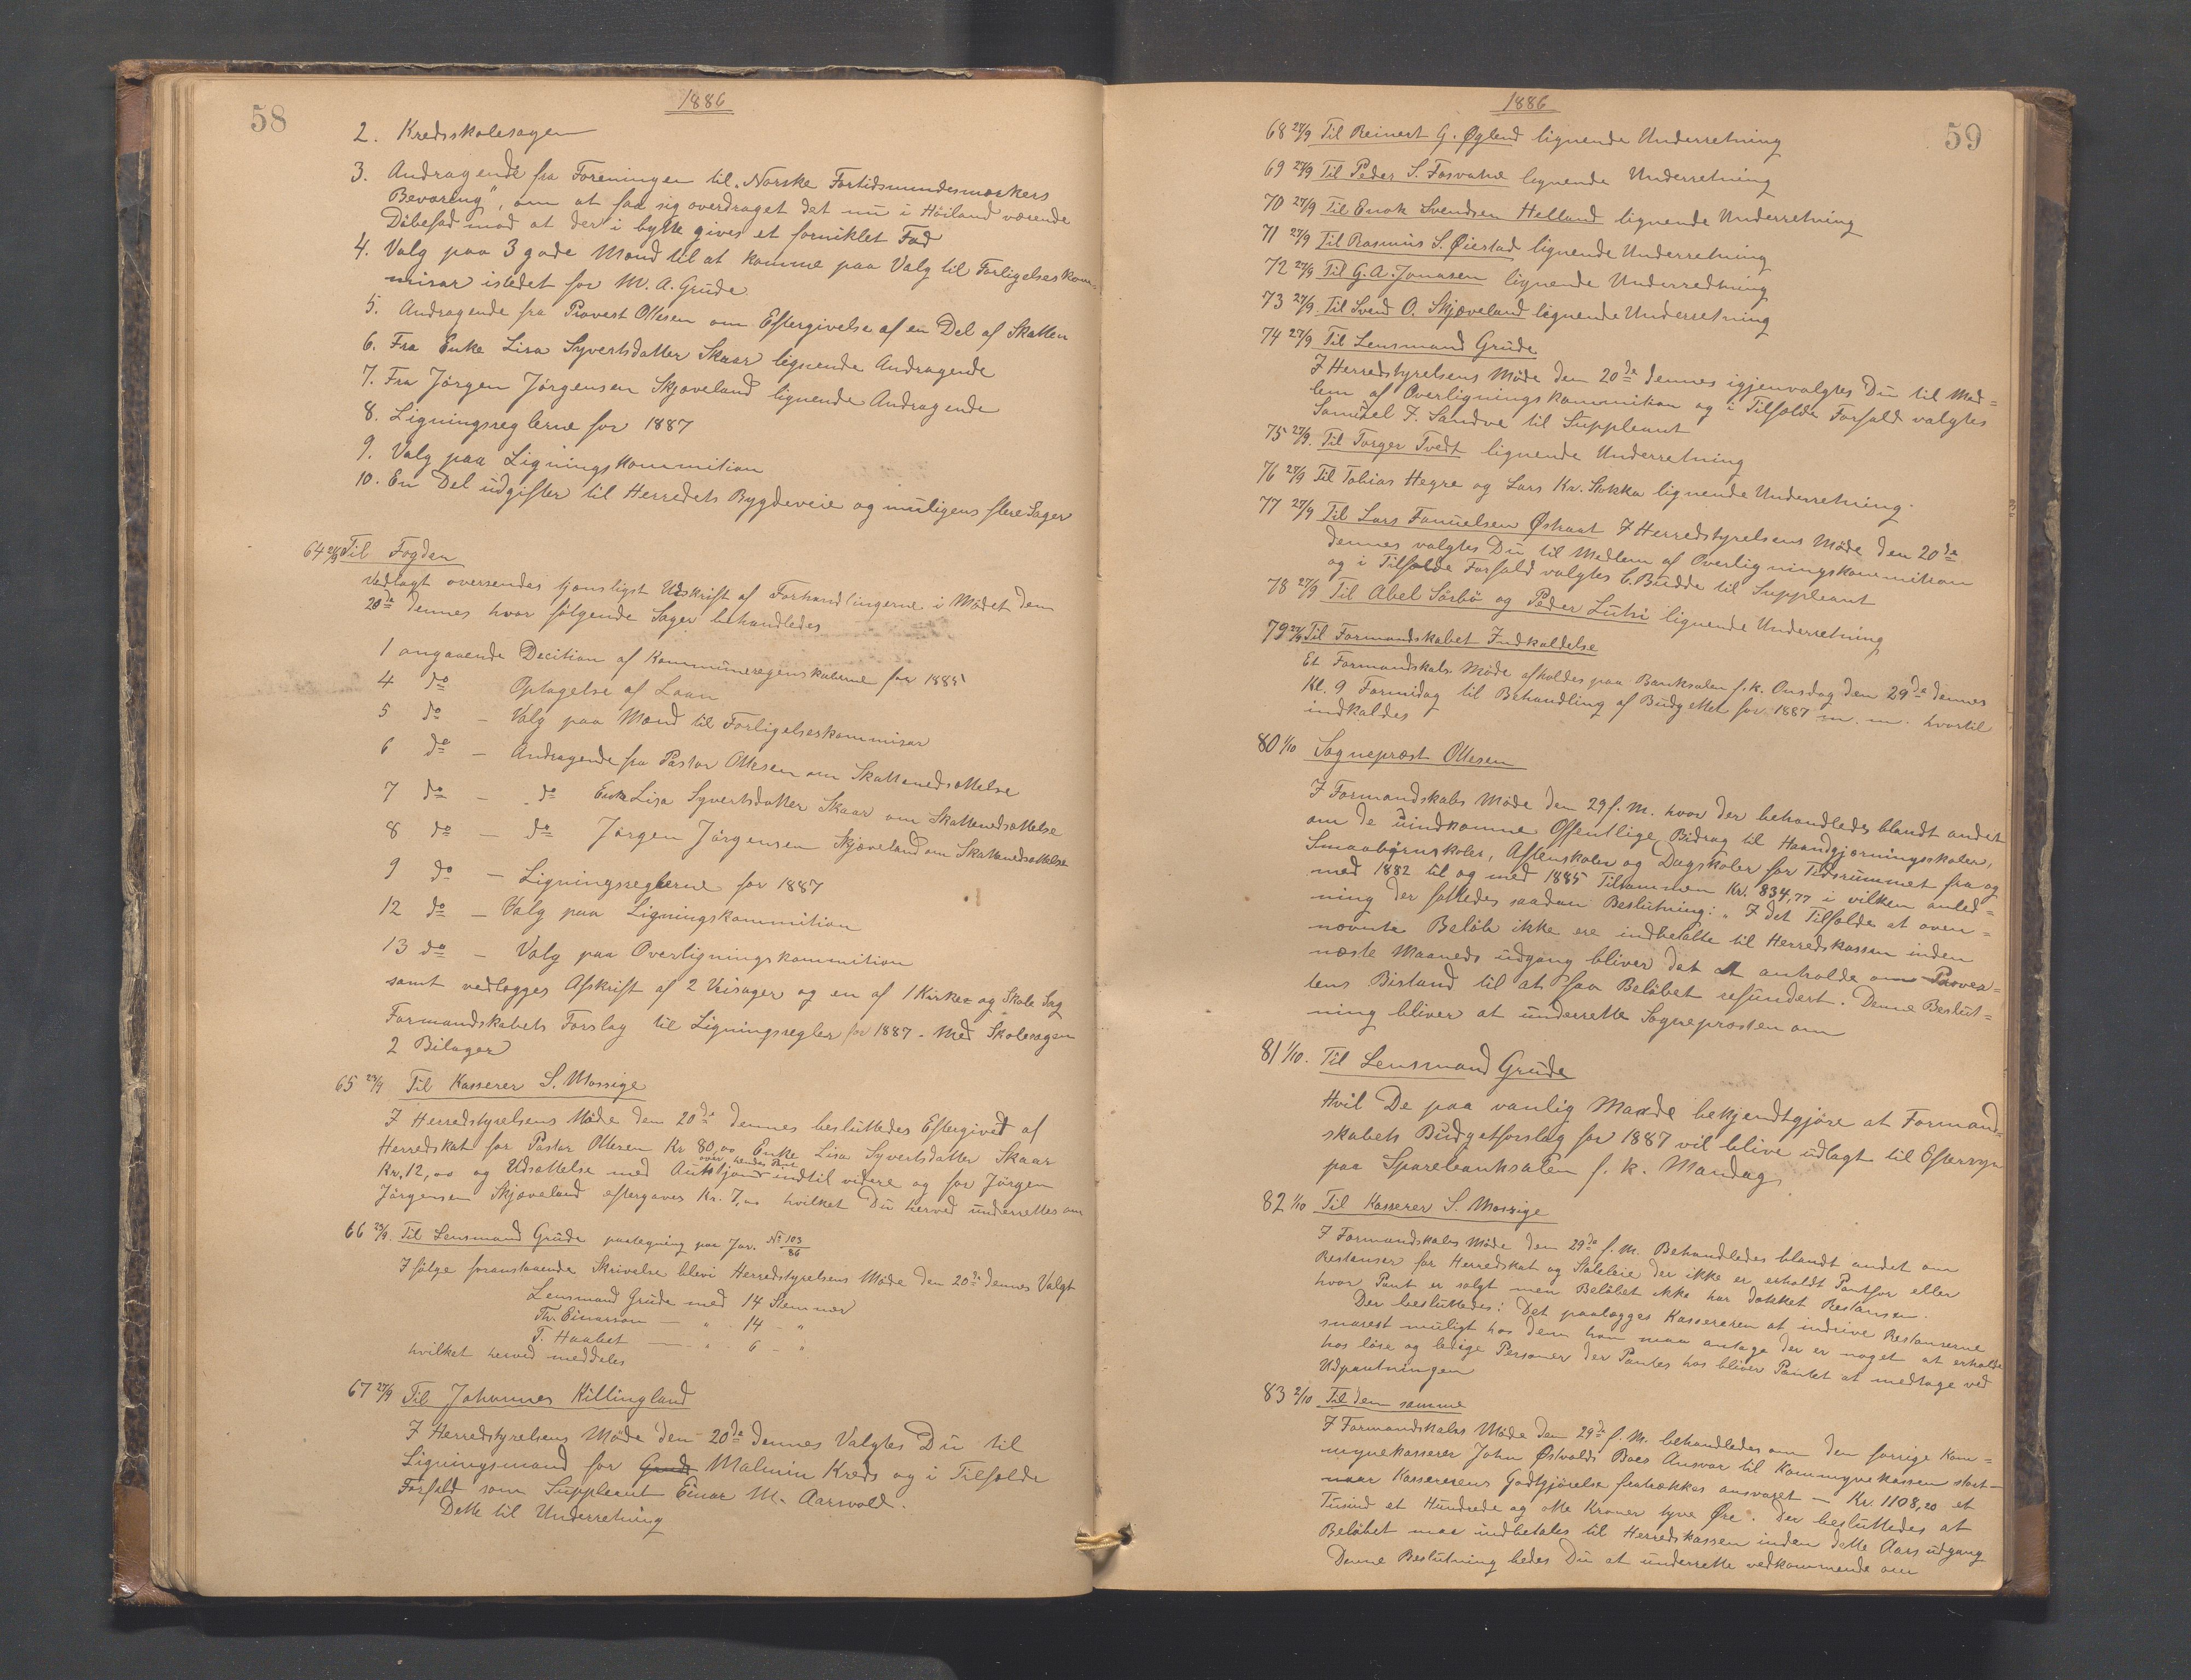 58
1886
2. Kredsskolesagen
3. Andragende fra Foreningen til "Norske Fortidsmindesmærkers
Bevaring", om at faa sig overdraget det nu i Höiland værende
Döbefad mod at der i bytte gives et forniklet Fad
4. Valg paa 3 gode Mænd til at komme paa Valg til Forligelseskom-
misær istedet for M. A. Grude
5. Andragende fra Provest Ottesen om Eftergivelse af en Del af Skatten
6. Fra Enke Lisa Syvertsdatter Skaar lignende Andragende
7. Fra Jörgen Jörgensen Skjæveland lignende Andragende
8. Ligningsreglerne for 1887
9. Valg paa Ligningskommition
10. En Del udgifter til Herredets Bygdeveie og muligens flere Sager
64 21/9 Til Fogden
Vedlagt oversendes tjensligst Udskrift af Forhandlingerne i Mödet den
20de dennes hvor fölgende Sager behandledes
1 angaaende Decition af Kommuneregenskaberne for 1885
4 do Optagelse af Laan
5 do - Valg paa Mænd til Forligelseskommisær
6 do - Andragende fra Pastor Ottesen om Skattenedsættelse
7 do - do Enke Lisa Syvertsdatter Skaar om Skattenedsættelse
8 do - do Jörgen Jörgensen Skjæveland om Skattenedsættelse
9 do - Ligningsreglerne for 1887
12 do - Valg paa Ligningskommition
13 do - Valg paa Overligningskommition
samt vedlægges Afskrift af 2 Veisager og en af 1 Kirke- og Skole Sag
Formandskabets Forslag til Ligningsregler for 1887 - Med Skolesagen
2 Bilager
65 23/9 Til Kasserer S. Mossige
I Herredstyrelsens Möde den 20de dennes besluttedes Eftergivet af
Herredskat for Pastor Ottesen Kr 80,00 Enke Lisa Syvertsdatter Skaar
Kr. 12,00 og Udsættelse med Auktjon over hendes Pant indtil videre og for Jörgen
Jörgensen Skjæveland eftergaves Kr. 7,00 hvilket Du herved underrettes om
66 23/9. Til Lensmand Grude paategning paa Jor. No 103/86
Ifölge foranstaaende Skrivelse blev i Herredstyrelsens Möde den 20de dennes Valgt
Lensmand Grude med 14 Stemmer
Th. Einarson — " 14 - "
T. Haabet — " 6 - "
hvilket herved meddeles
67 27/9 Til Johannes Killingland
I Herredstyrelsens Möde den 20de dennes Valgtes Du til
Ligningsmand for Grude Malmin Kreds og i Tilfælde
Forfald som Suppleant Einar M. Aarsvold.
Dette til Underretning
59
1886
68 27/9 Til Reinert G. Øglend lignende Underretning
69 27/9 Til Peder S. Fosvatne lignende Underretning
70 27/9 Til Enok Svendsen Helland lignende Underretning
71 27/9 Til Rasmus S. Øiestad lignende Underretning
72 27/9 Til G. A. Jonasen lignende Underredning
73 27/9 Til Svend O. Skjæveland lignende Underretning
74 27/9 Til Lensmand Grude
I Herredstyrelsens Möde den 20de dennes igjenvalgtes Du til Med=
lem af Overligningskommition og i Tilfælde Forfald valgtes
Samuel F. Sandve til Suppleant
75 27/9. Til Torger Tvedt lignende Underretning
76 27/9 Til Tobias Hegre og Lars Kr. Stokka lignende Underretning.
77 27/9 Til Lars Famuelsen Østraat I Herredstyrelsens Möde den 20de
dennes valgtes Du til Medlem af Overligningskommition
og i Tilfælde Forfald valgtes C. Budde til Suppleant
78 27/9 Til Abel Sörbö og Peder Lutsi lignende Underretning
79 27/9 Til Formandskabet Indkaldelse
Et Formandskabs Möde afholdes paa Banksalen f. k. Onsdag den 29de dennes
Kl. 9 Formidag til Behandling af Budgettet for 1887 m. m. hvortil
indkaldes
80 1/10 Sogneprest Ottesen
I Formandskabs Möde den 29 f. M. hvor der behandledes blandt andet
om de uindkomne Offentlige Bidrag til Haandgjærningsskoler,
Smaabörnskoler, Aftenskoler og Dagskoler for Tidsrummet fra og
med 1882 til og med 1885 Tilsammen Kr. 834,77 i vilken anled=
ning der fattedes saadan Beslutning: "I det Tilfælde at oven=
nævnte Belöb ikke ere indbetalte til Herredskassen inden
næste Maaneds udgang bliver det at anholde om Proves=
tens Bistand til at faa Belöbet refundert. Denne Beslut=
ning bliver at underrette Sognepresten om
81 1/10. Til Lensmand Grude
Hvil De paa vanlig Maade bekjendtgjöre at Formand=
skabets Budgetforslag for 1887 vil blive udlagt til Eftersyn
paa Sparebanksalen f. k. Mandag
82 1/10 Til Kasserer S. Mossige
I Formandskabs Möde den 29de f. M. Behandledes blandt andet om
Restanser for Herredskat og Skoleleie der ikke er erholdt Pant for eller
hvor Pant er solgt men Belöbet ikke har dækket Restansen.
Der besluttedes: Det paalægges Kassereren at indrive Restanserne
snarest muligt hos dem han maa antage der er noget at erholde
hos löse og ledige Personer der Pantes hos bliver Pantet at medtage ved
Udpantningen
83 2/10 Til den samme
I Formandskabs Möde den 29de f. M. behandledes om den forrige Kom=
mynekasserer John Østvolds Boes Ansvar til Kommynekassen stort—
naar Kassererens Godtgjörelse fratrækkes ansvaret — Kr. 1108,20 et
Tusind et Hundrede og otte Kroner tyve Øre. Der besluttedes at
Belöbet maa indbetales til Herredskassen inden dette Aars udgang
Denne Beslutning bedes Du at underrette vedkommende om